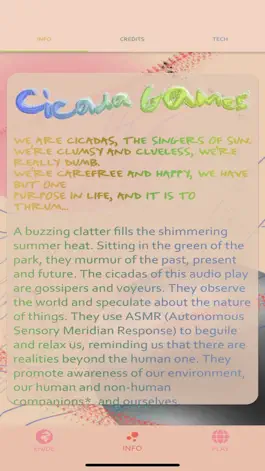 INFO
CREDITS
TECH
Cicada Games
WE ARE CICADAS, THE SINGERS OF SUN.
WE'RE CLUMSY AND CLUELESS, WE'RE
REALLY DUMB.
WE'RE CAREFREE AND HAPPY, WE HAVE
BUT ONE
PURPOSE IN LIFE, AND IT IS TO
THRUM...
A buzzing clatter fills the shimmering
summer heat. Sitting in the green of the
park, they murmur of the past, present
and future. The cicadas of this audio play
are gossipers and voyeurs. They observe
the world and speculate about the nature
of things. They use ASMR (Autonomous
Sensory Meridian Response) to beguile
and relax us, reminding us that there are
realities beyond the human one. They
promote awareness of our environment,
our human and non-human
companions*, and ourselves.
INFO